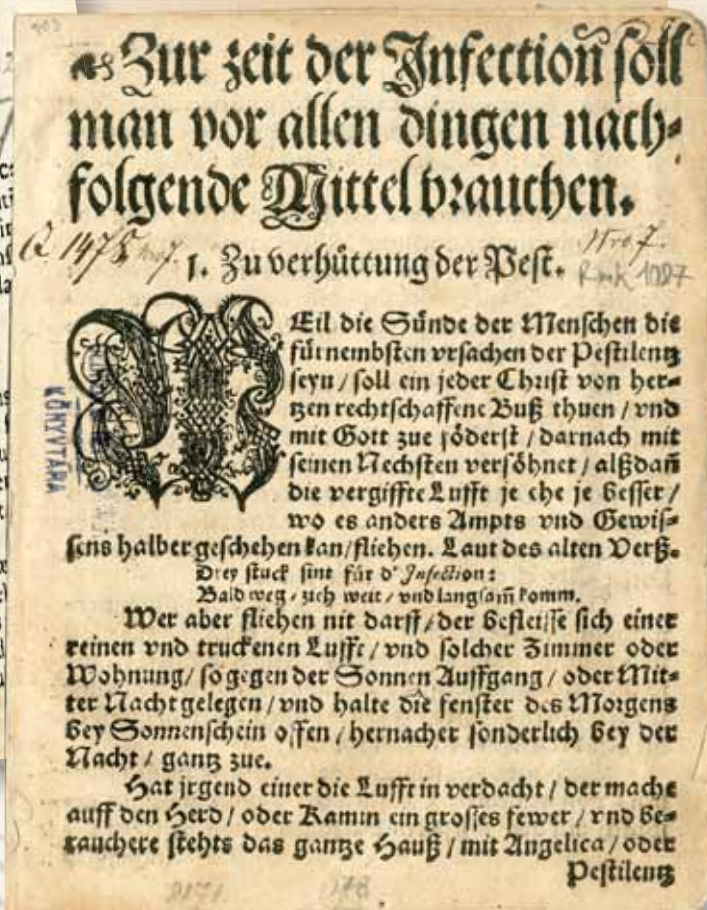 Zur zeit der Infection soll
man vor allen dingen nach-
folgende Mittel brauchen.
Q 1475
1. Zu verhüttung der Pest.
WEil die Sünde der Menschen die
fürnembsten vrsachen der Pestilentz
seyn / soll ein jeder Christ von her-
tzen rechtschaffene Buß thuen / vnd
mit Gott zue föderst / darnach mit
seinen Nechsten versöhnet / alßdañ
die vergiffte Lufft je ehe je besser /
wo es anders Ampts vnd Gewis-
sens halber geschehen kan / fliehen. Laut des alten Verß.
Drey stuck sint für d' Infection:
Bald weg / zich weit / vnd langsam̃ komm.
Wer aber fliehen nit darff / der befleisse sich einer
reinen vnd truckenen Lufft / vnd solcher Zimmer oder
Wohnung / so gegen der Sonnen Auffgang / oder Mit-
ter Nacht gelegen / vnd halte die fenster des Morgens
bey Sonnenschein offen / hernacher sonderlich bey der
Nacht / gantz zue.
Hat jrgend einer die Lufft in verdacht / der mache
auff den Herd / oder Kamin ein grosses fewer / vnd be-
rauchere stehts das gantze Hauß / mit Angelica / oder
Pestilentz
KÖNYVTÁRA
178